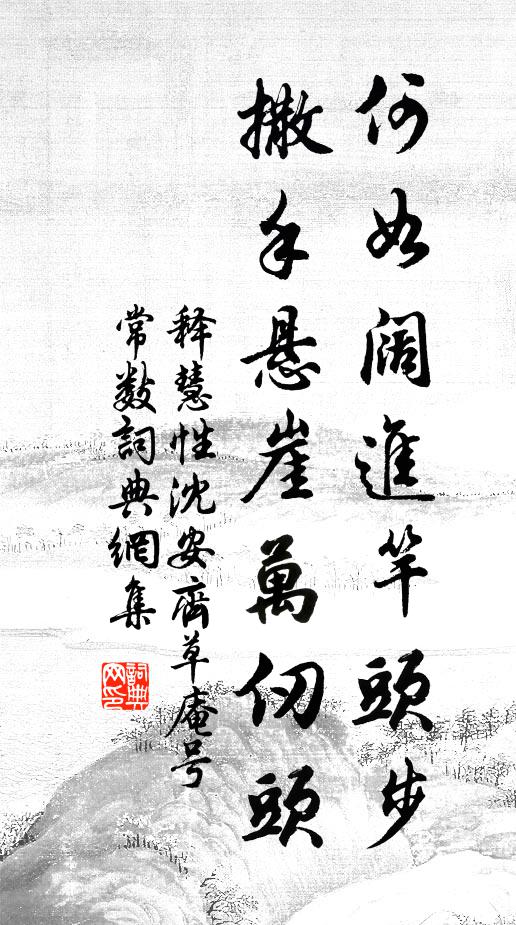 何如阔進竿頭步
撒手悬崖萬仞頭
释慧性沈安齊草庵号
常數詞典網集
詞典網印